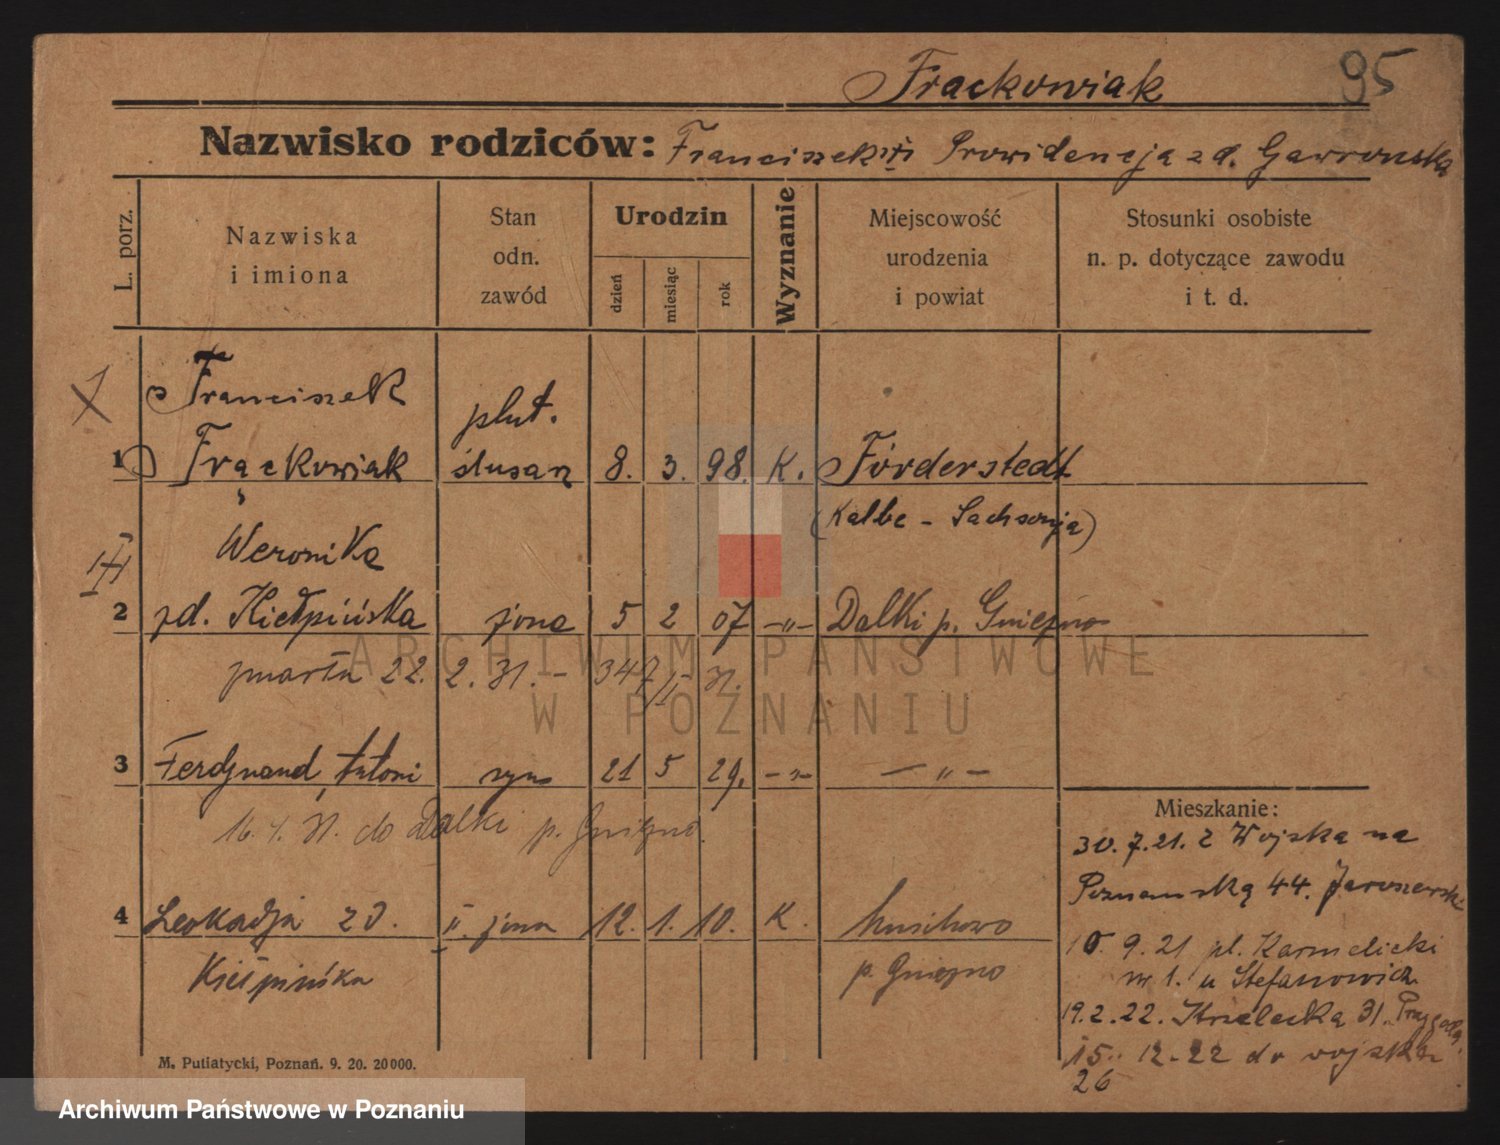 Frackowiak 95
Nazwisko rodziców: Franciszek i Prowidencja zd. Gawronska
L. porz.
Nazwiska
i imiona
Stan
odn.
zawód
Urodzin
dzień
miesiąc
rok
Wyznanie
Miejscowość
urodzenia
i powiat
Stosunki osobiste
n. p. dotyczące zawodu
i t. d.
Franciszek plut.
1 Frąckowiak ślusarz 8. 3. 98. K. Förderstedt
(Kalbe - Sachsonja)
Weronika
2 zd. Kiełpińska żona 5 2 07 -„- Dalki p. Gniezno
zmarła 22. 2. 31. - 347/II 31.
3 Ferdynand, Antoni syn 21 5 29. -„- -„-
16. 4. 31. do Dalki p. Gniezno.
4 Leokadja zd. II. żona 12. 1. 10. K.
Kiełpińska p. Gniezno
Mieszkanie:
30. 7. 21. z Wojska na
Poznanską 44. Jaroszewski
10. 9. 21 pl. Karmelicki
nr 1. u Stefanowicz
19. 2. 22. Strzelecka 31
15. 12. 22 do wojska
26
M. Putiatycki, Poznań. 9. 20. 20000.
ARCHIWUM PAŃSTWOWE
W POZNANIU
Archiwum Państwowe w Poznaniu